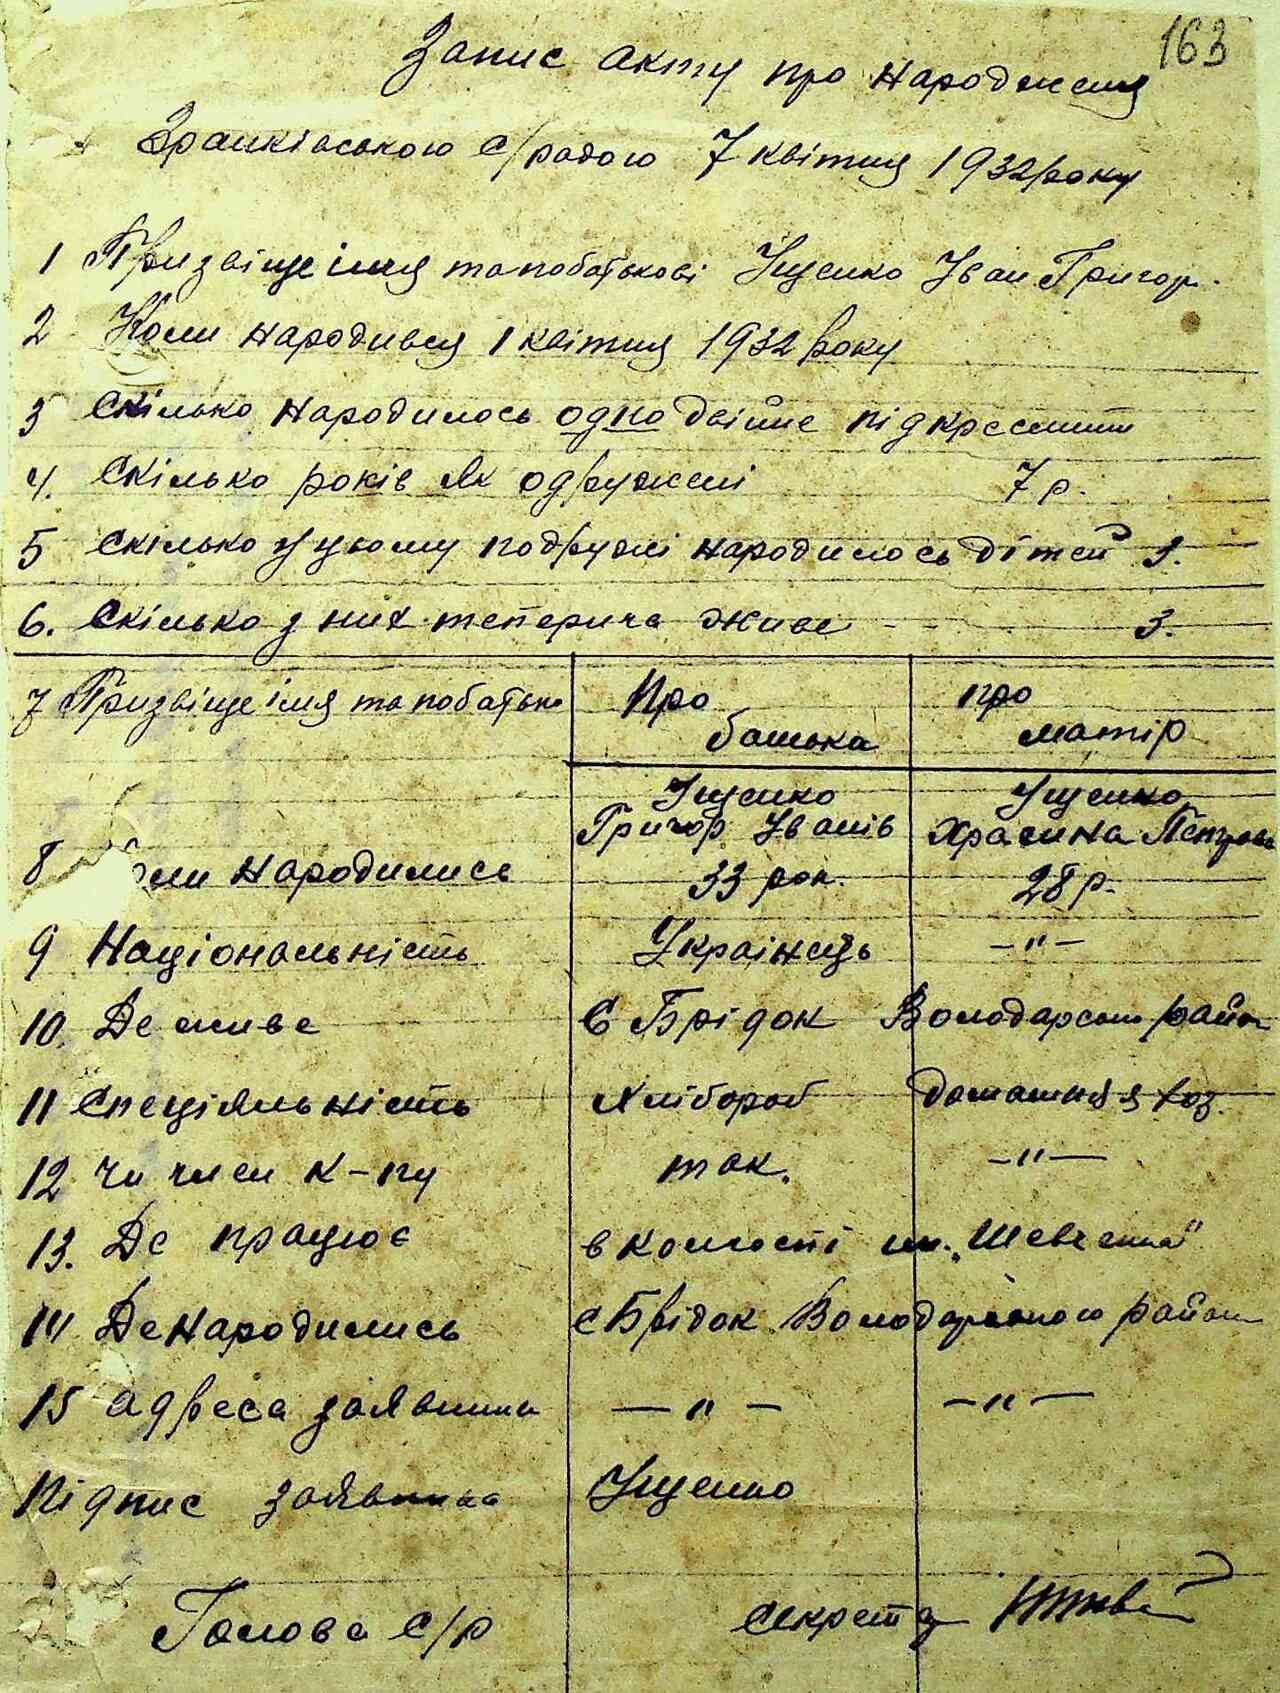 163
Запис акту про народження
с/радою 7 квітня 1932 року
1 Призвіще імя та побатькові Іщенко Іван Григор.
2 Коли народився 1 квітня 1932 року
3 Скілько народилось одно двійне підкреслити
4. Скілько років як одружені 7 р.
5 Скілько у цьому подружі народилось дітей 3.
6. Скілько з них теперича живе 3.
7 Призвіще імя та побатьк Про батька про матір
Іщенко Іщенко
Григор Іванів Петров
8 оли народились 33 рок. 28 р.
9 Національність Українець -"-
10. Де живе с Брідок Володарськ район
11 Спеціяльність Хлібороб домашня хоз.
12 Чи член к-пу так. -"-
13. Де працює в колгоспі ім. „Шевченка"
14 Де народились с Брідок Володарського району
15 адреса заявника -"- -"-
Підпис заявника Іщенко
Голова с/р секретар